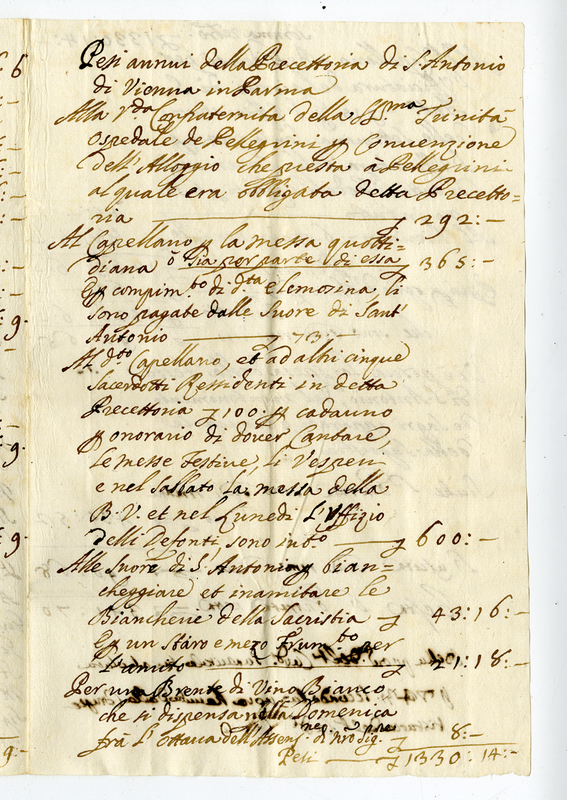 Pesi annui della Precettoria di S. Antonio
di Vienna in Parma
Alla Vda Confraternita della SSma Trinità
Ospedale de Pellegrini p Convenzione
dell'Alloggio che presta à Pellegrini
al quale era obbligata detta Precetto=
ria 292:-
Al Capellano p la messa quotti=
diana ò sia per parte di essa 365:-
E p compimto di dta elemosina li
sono pagate dalle Suore di Sant'
Antonio 73:-
Al dto Capellano, et ad altri cinque
Sacerdotti Residenti in detta
Precettoria 100: p cadauno
p onorario di dover Cantare,
le messe festive, li Vesperi
e nel Sabbato la messa della
B.V. et nel Lunedi L'Uffizio
delli Defonti, sono in tto 600:-
Alle Suore di S. Antonio p bian=
cheggiare et inamitare le
Bianchene della Sacristia 43:16:-
E p un Staro e mezo Frumto per
L'amito 21:18:-
Per una Brente di Vino Bianco
che si dispensa nella Domenica
frà L'ottava dell'Assensne di nro Sigre 8:-
Pesi 1330:14:-
6
9
9.
9.
9:-